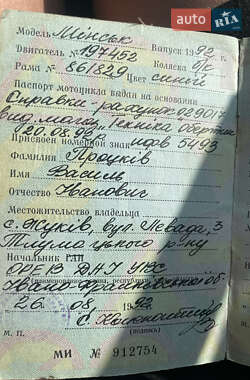 auto RIA
Модель Мінськ
Двигатель № 197452 Выпуск 1992 г.
Рама № 861829 Коляска б/к
Цвет синий
Паспорт мотоцикла выдан на основании
Справки-рахунок 029017
вид. магаз. "Техніка
20.08.92
Присвоен номерной знак 5493
Фамилия Процків
Имя Василь
Отчество Іванович
Местожительство владельца
с. Жуків, вул. Левада, 3
Тлумацького р-ну
Начальник ГАИ
ОРЕВ ДАІ УВС
Івано-Франківської об.
26 08 1992
(подпись)
М. П.
МИ № 912754